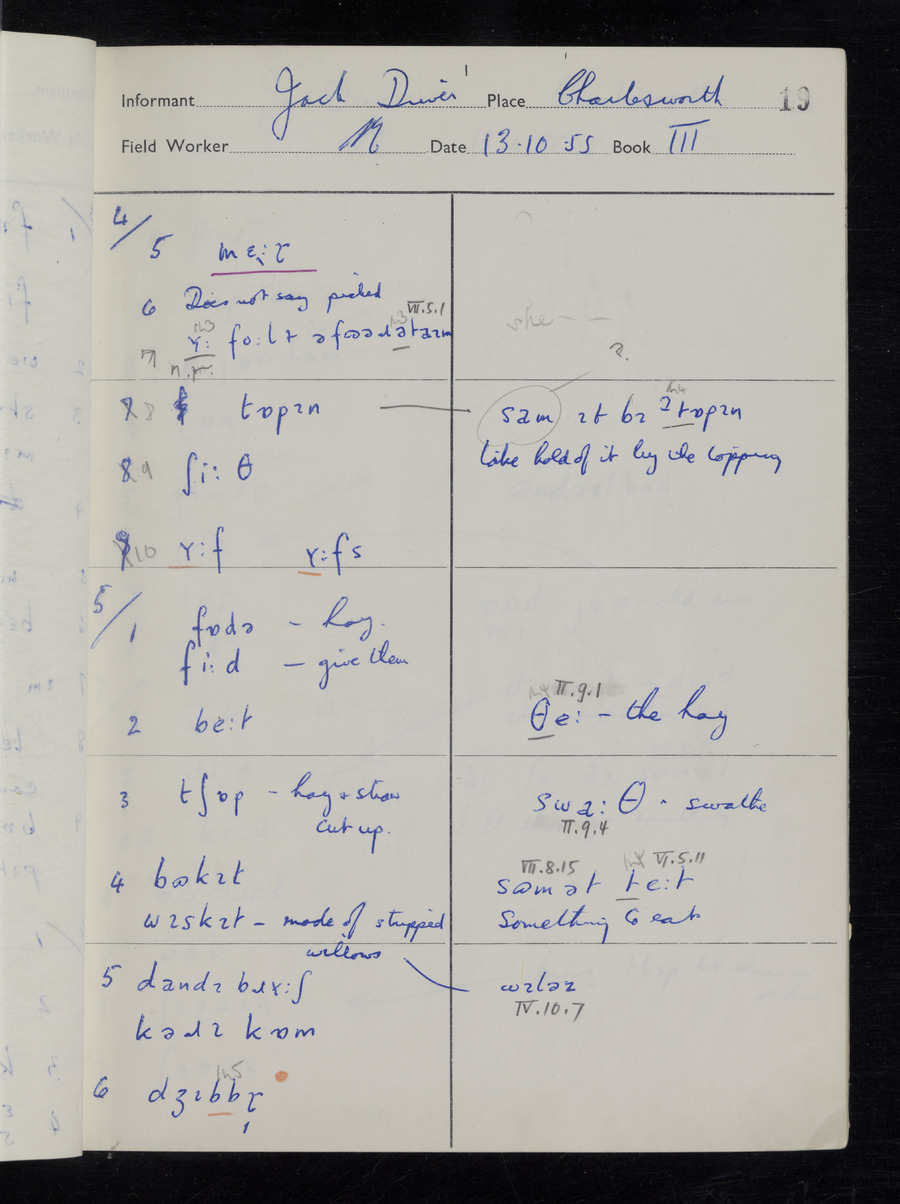 Informant Jack Driver Place Charlesworth 19
Field Worker Date 13.10.55 Book III
4/
5 mɛ̜:ɽ
6 Does not say picked
VII.5.1
7 ʏ: fo:lt
n.r.
?
8 tɒpɪn sam ɪt bɪ ʔtɒpɪn
take hold of it by the topping
9 ʃi:θ
10 ʏ:f ʏ:fs
5/
1 fɒdə – hay.
fi:d – give them
II.9.1
2 be:t θe: – the hay
3 tʃɒp – hay & straw swa:θ · swathe
cut up. II.9.4
VIII.8.15 VI.5.11
4 baskɪt samət te:t
wɪskɪt – made of stripped something to eat
willows
5 dandɪ brʏ:ʃ wɪləz
IV.10.7
kəɹɪ kɒm
6 dʒɪbbɽ